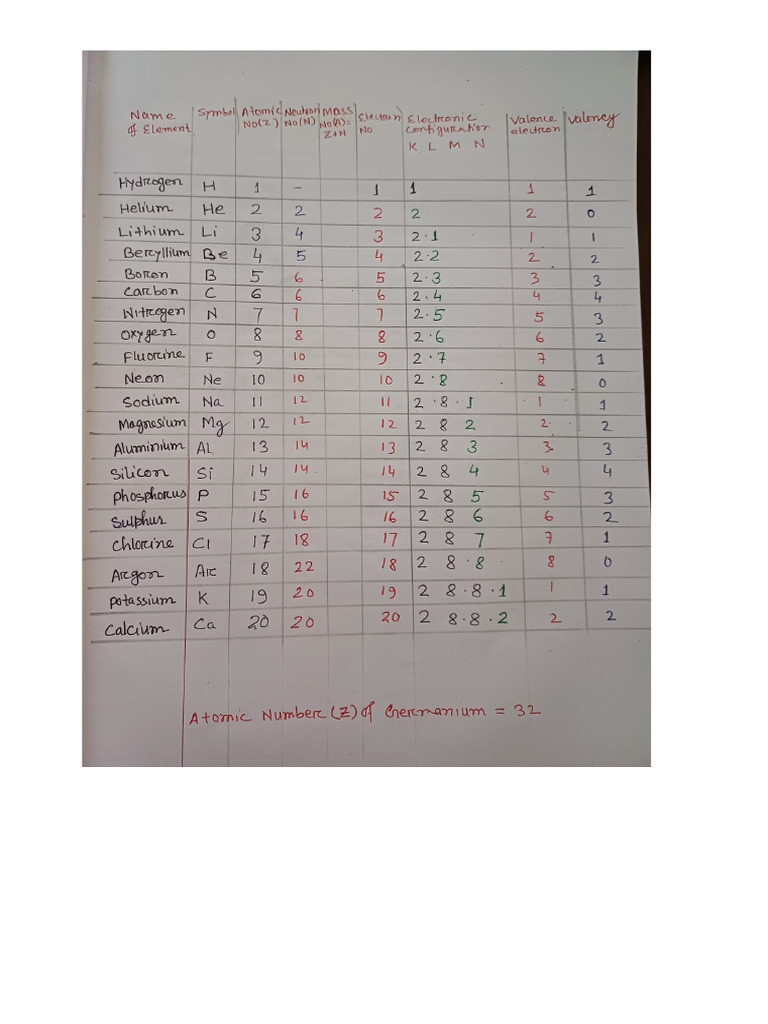 Name of Element Symbol Atomic No(Z) Neutron No(N) Mass No(A)= Z+N Electron No Electronic Configuration K L M N Valence electron Valency
Hydrogen H 1 - 1 1 1 1
Helium He 2 2 2 2 2 0
Lithium Li 3 4 3 2·1 1 1
Beryllium Be 4 5 4 2·2 2 2
Boron B 5 6 5 2·3 3 3
Carbon C 6 6 6 2.4 4 4
Nitrogen N 7 7 7 2·5 5 3
Oxygen O 8 8 8 2·6 6 2
Fluorine F 9 10 9 2·7 7 1
Neon Ne 10 10 10 2·8 8 0
Sodium Na 11 12 11 2·8·1 1 1
Magnesium Mg 12 12 12 2 8 2 2 2
Aluminium AL 13 14 13 2 8 3 3 3
Silicon Si 14 14 14 2 8 4 4 4
Phosphorus P 15 16 15 2 8 5 5 3
Sulphus S 16 16 16 2 8 6 6 2
Chlorine Cl 17 18 17 2 8 7 7 1
Argon Ar 18 22 18 2 8·8 8 0
Potassium K 19 20 19 2 8·8·1 1 1
Calcium Ca 20 20 20 2 8·8·2 2 2
Atomic Number (Z) of Germanium = 32